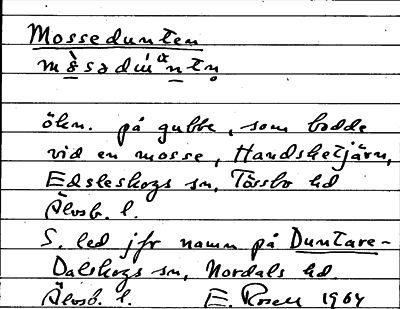 Mossedunten
mò̱sadúᵅṉtṇ
ökn. på gubbe, som bodde
vid en mosse, Handsketjärn,
Edsleskogs sn, Tössbo hd
Älvsb. l.
S. led jfr namn på Duntare-
Dalskogs sn, Nordals hd.
Älvsb. l. E. Rosell 1964